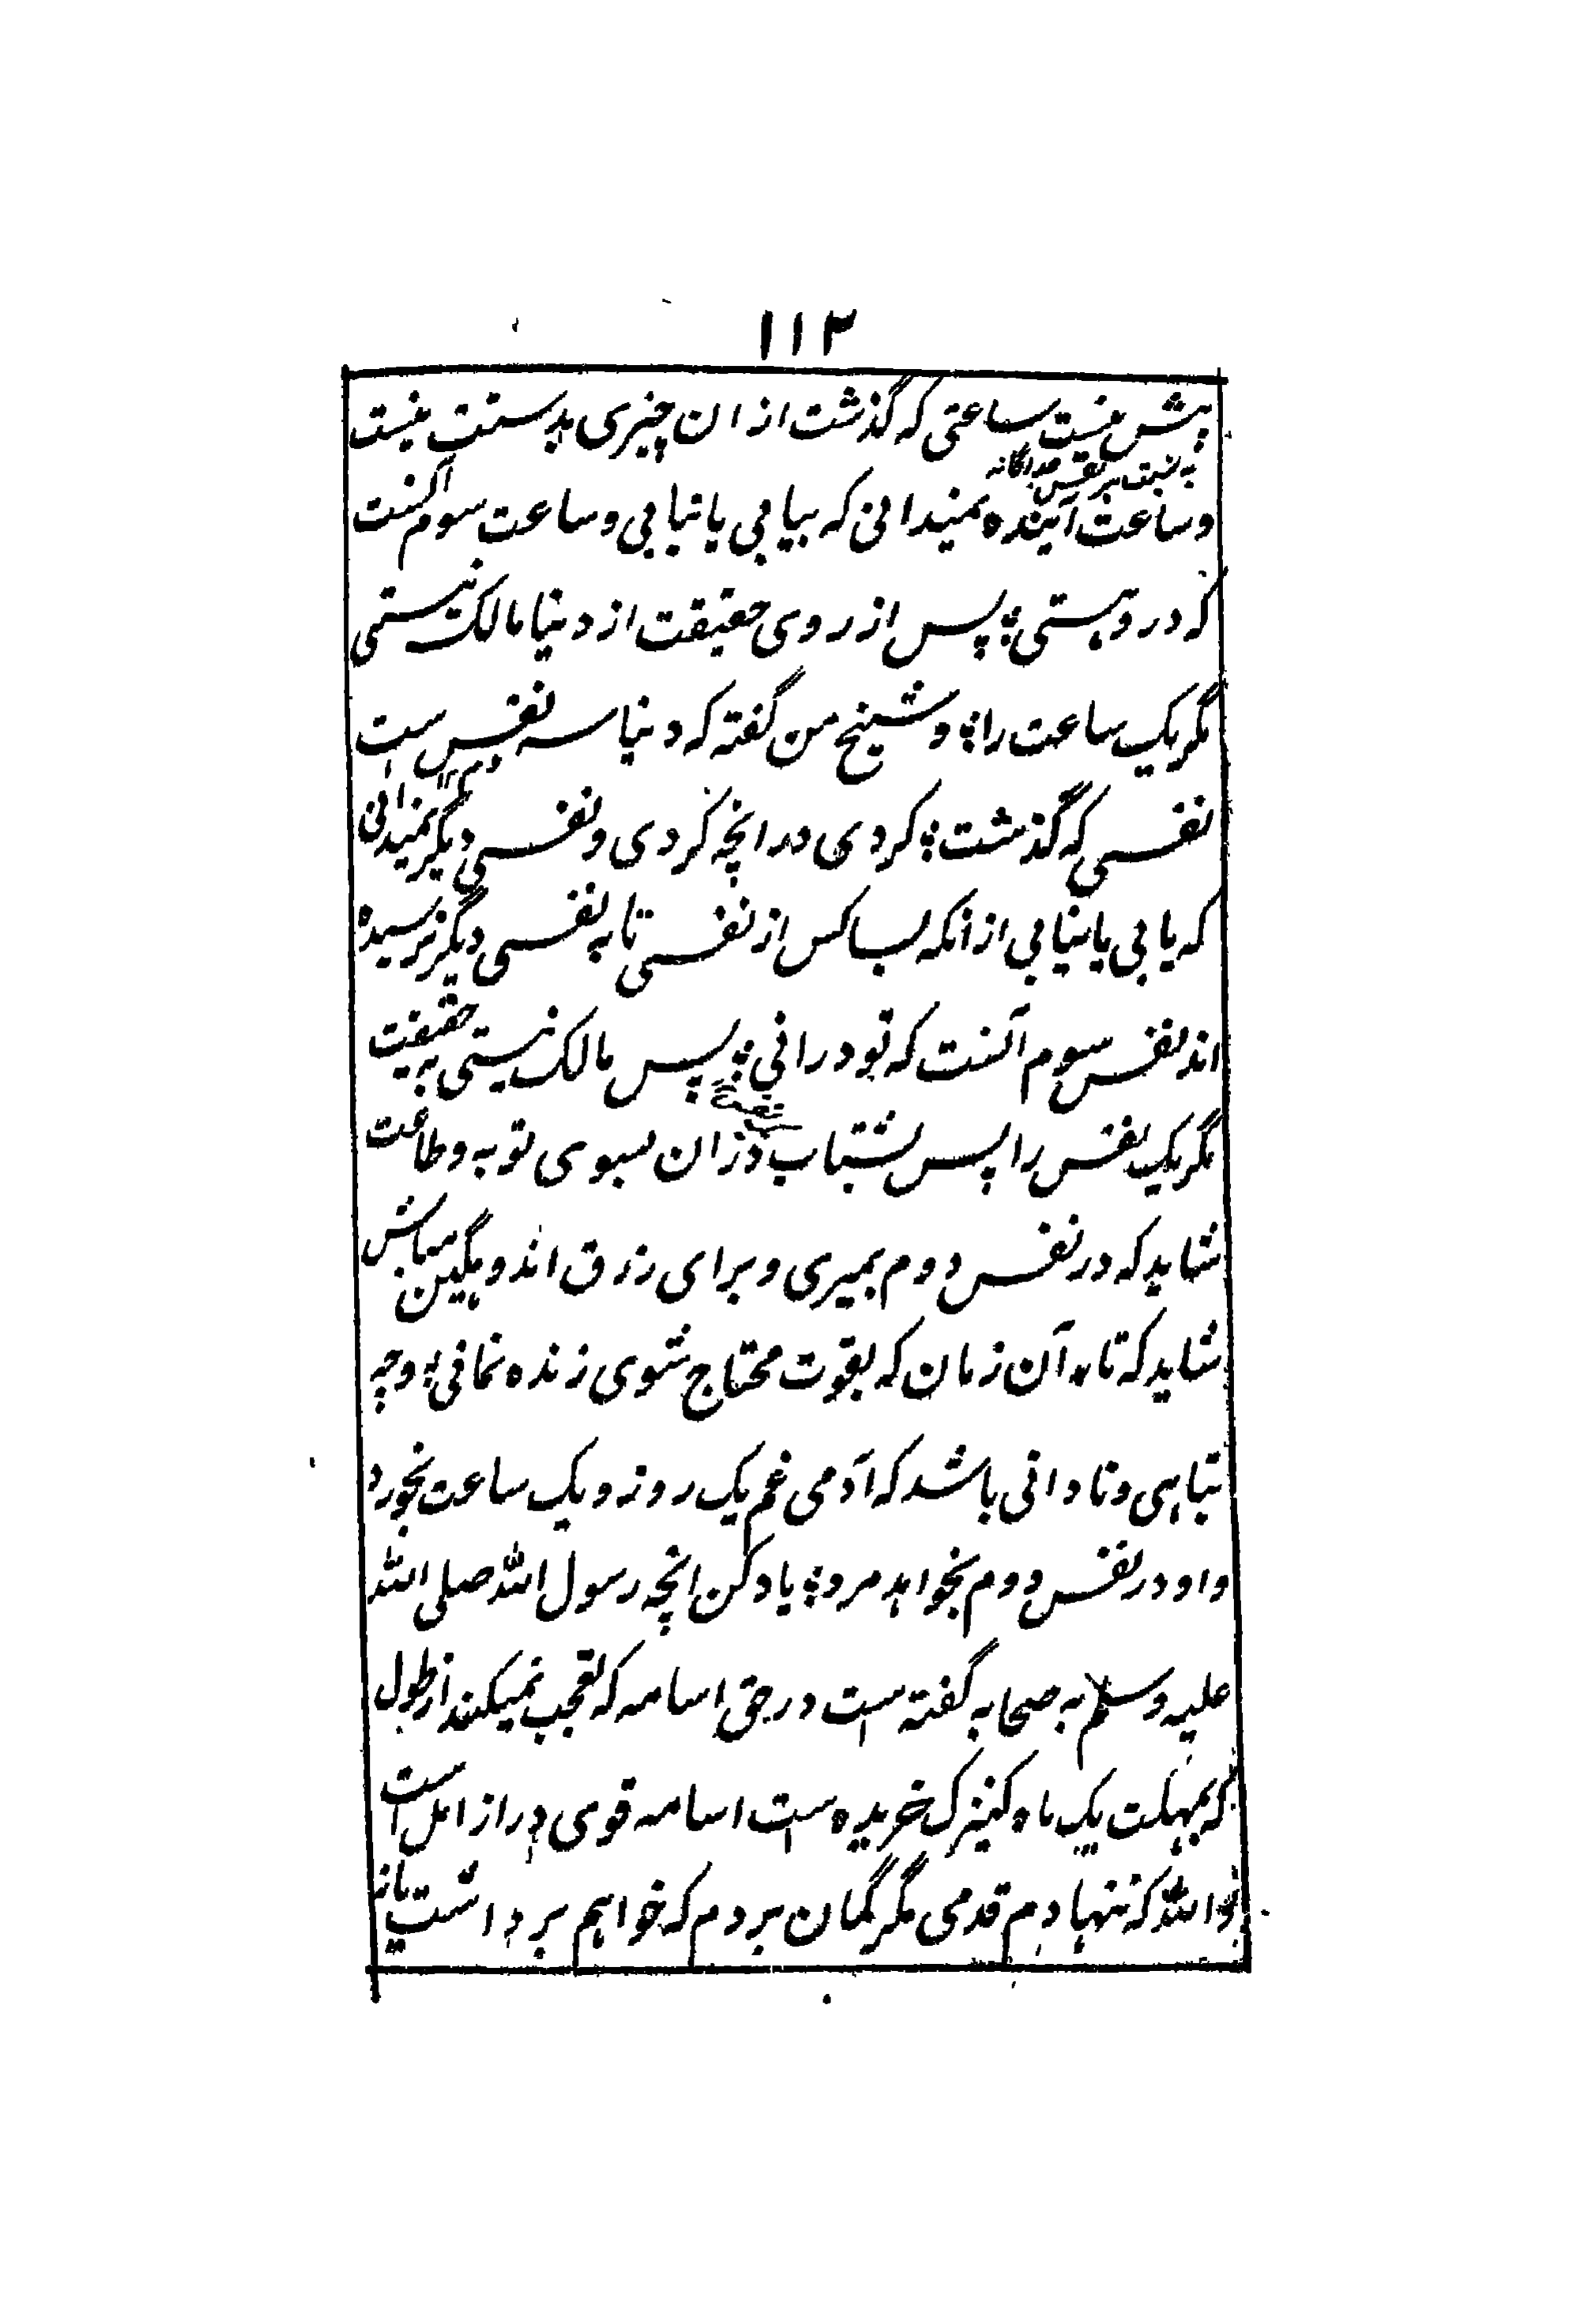 ١١٣
پیش نیست ساعتی که گذشت ازان چیزی بدستت نیست
وساعت آینده نمیدانی که بیابی یا نیابی وساعت سوم آنست
که درو هستی؛ پس از روی حقیقت از دنیا مالک نیستی
مگر یک ساعت را؛ و شیخ من گفته که دنیا سه نفس ست
نفسی که گذشت؛ کردی در انچه کردی و نفسی دیگر نمیدانی
که یابی یا نیابی ازانکه بسا کس از نفسی تا به نفسی دیگر نرسیده
اند نفس سوم آنست که تو درانی؛ پس مالک نیستی به حقیقت
مگر یک نفس را پس بشتاب دران بسوی توبه و طاعت
شاید که در نفس دوم بمیری و برای رزق اندوهگین مباش
شاید که تا آن زمان که بقوت محتاج شوی زنده نمانی؛ وچه
تباهی و نادانی باشد که آدمی غم یک روز و یک ساعت بخورد
و او در نفس دوم بخواهد مرد؛ یاد کن انچه رسول الله صلی الله
علیه وسلم به صحابه گفته ست در حق اسامه که تعجب نمیکنند از طول
که بمهلت یک ماه کنیزک خریده ست اسامه قوی دراز امل است
والله که ننهادم قدمی مگر گمان بردم که خواهم برداشت یا نه